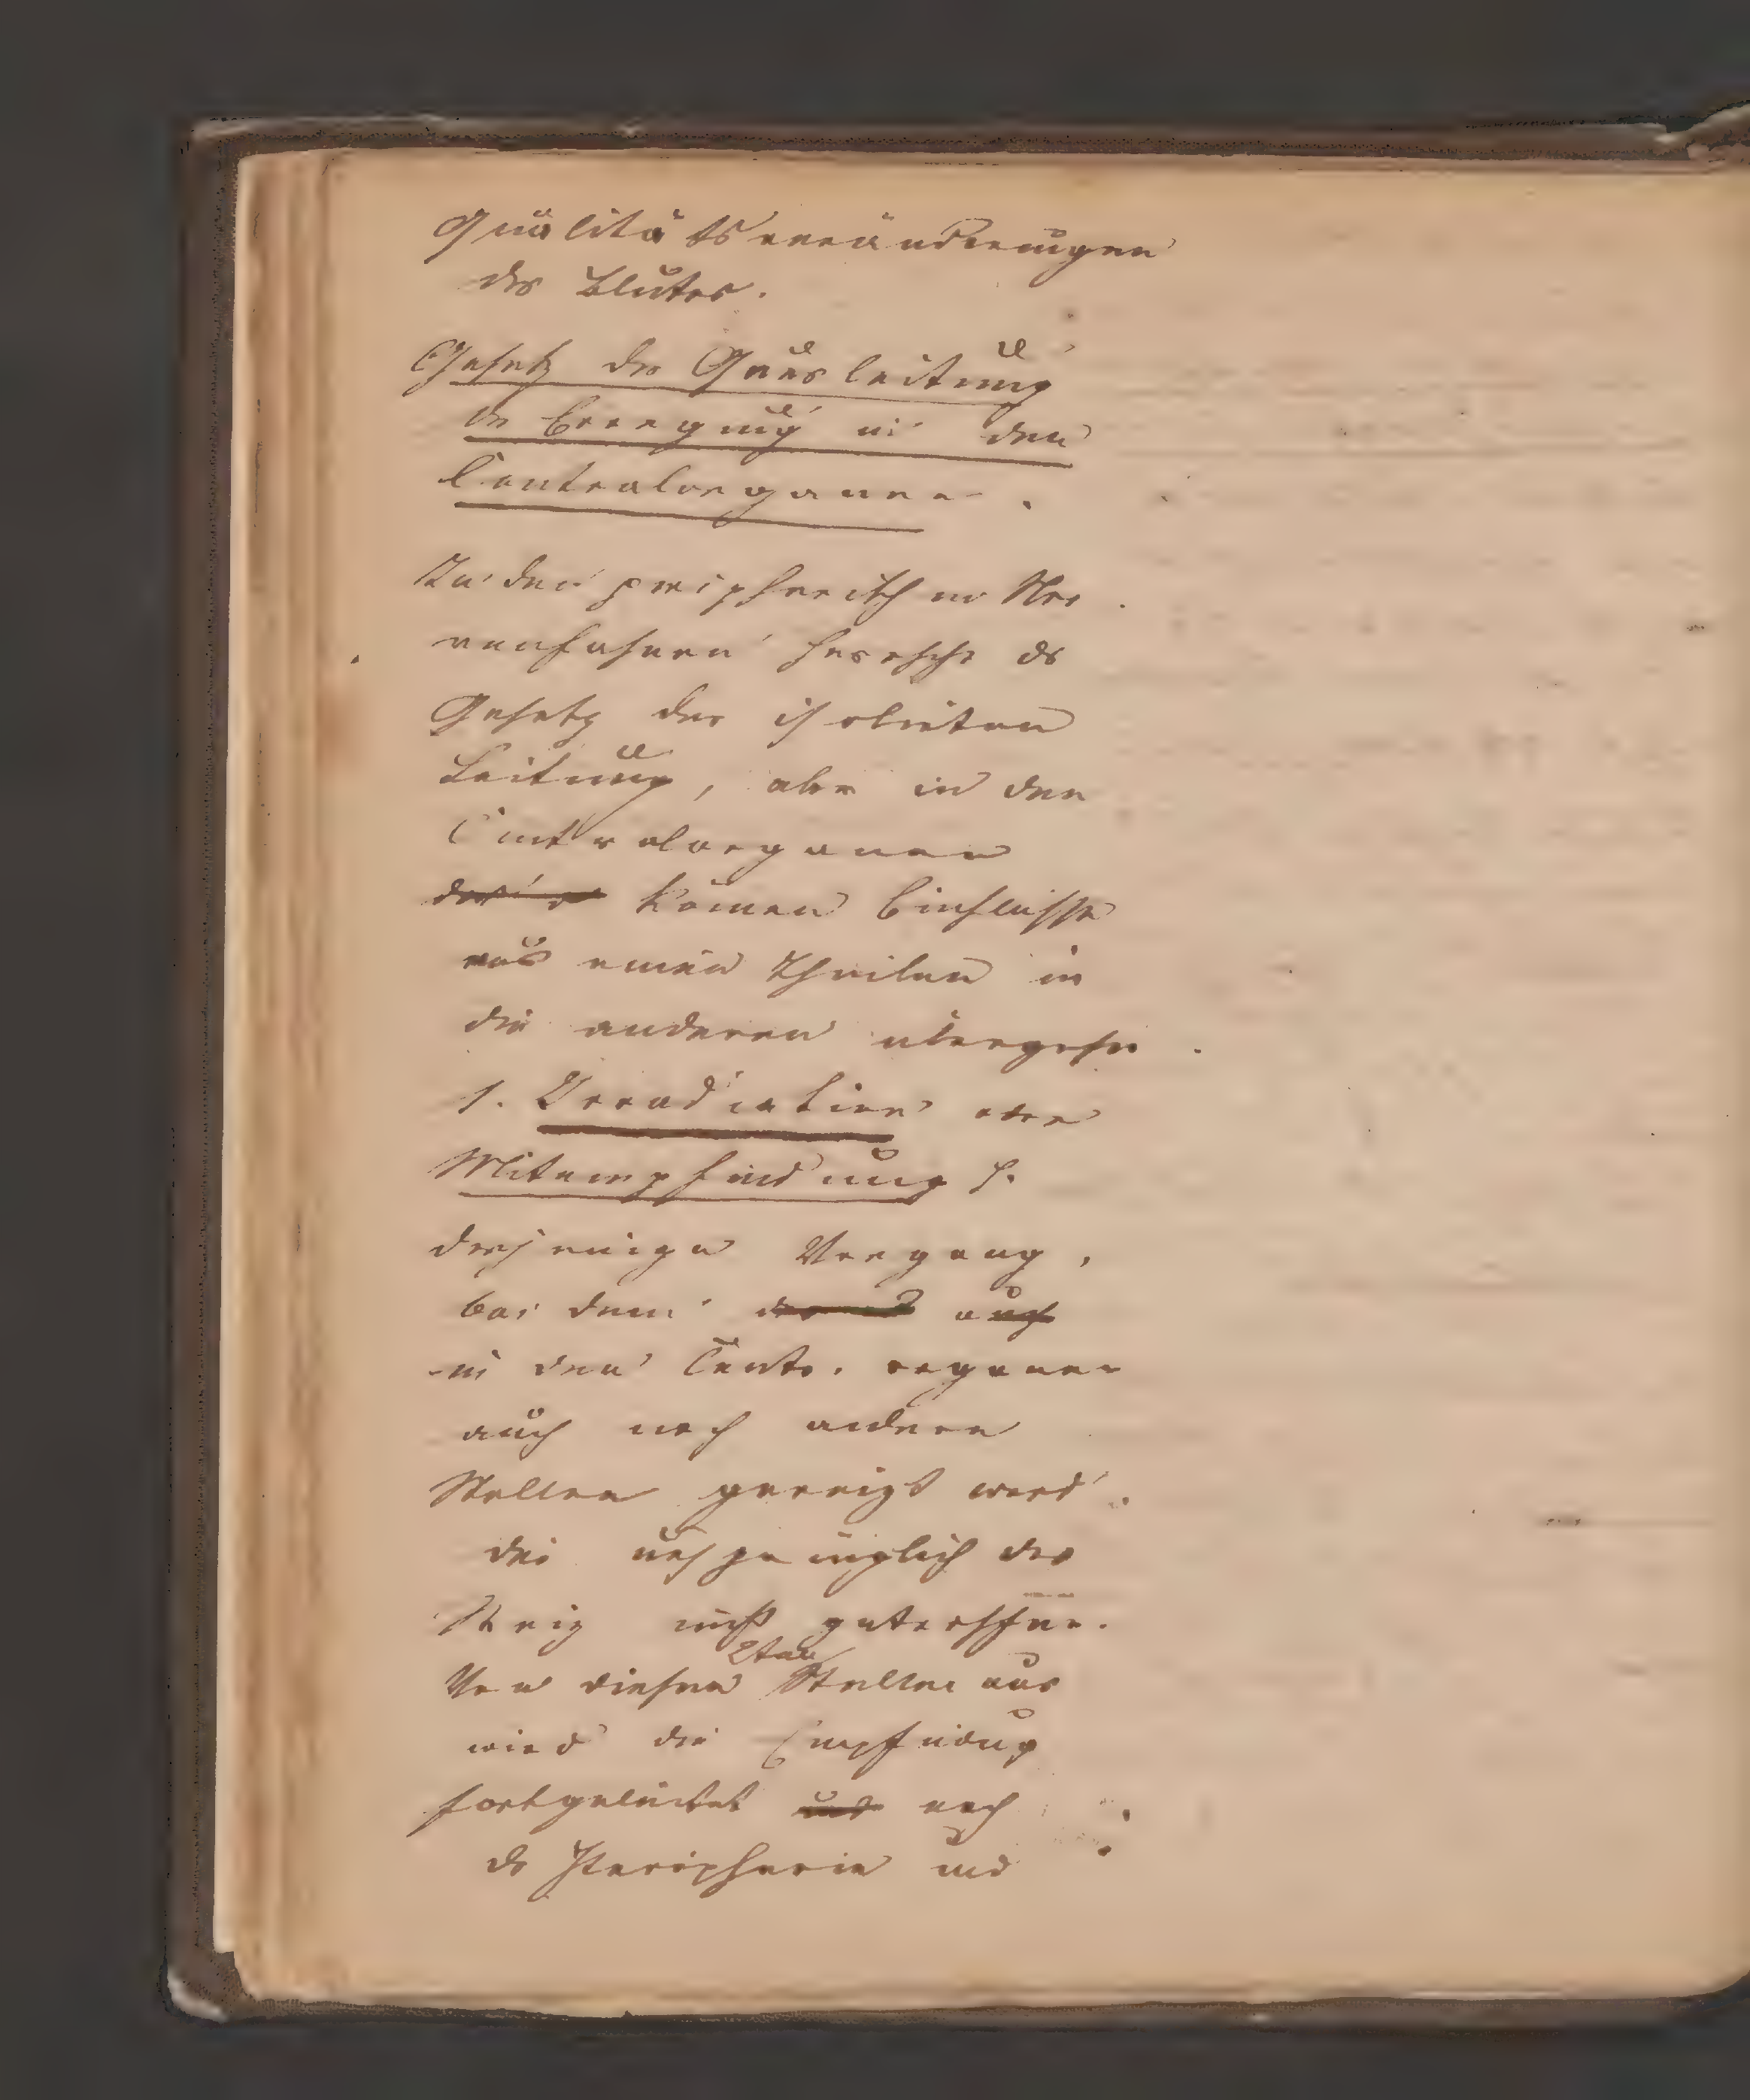 Qualitätsveränderungen
des Blutes.
Gesetz der Querleitung
der Erregung in den
Centralorganen.
In den peripherischen Ner
venfasern herrscht das
Gesetz der isolirten
Leitung, aber in den
Centralorganen
können Einflüsse
aus einen Theilen in
die anderen übergehen.
1. Irradiation oder
Mitempfindung
derjenige Vorgang,
bei dem auch
in den Centr. organen
auch noch andere
Stellen gereizt werd.
die ursprünglich der
Reiz nicht getroffen.
2ten
Von diesen Stellen aus
wird die Empfindung
fortgeleitet und nach
der Peripherie und